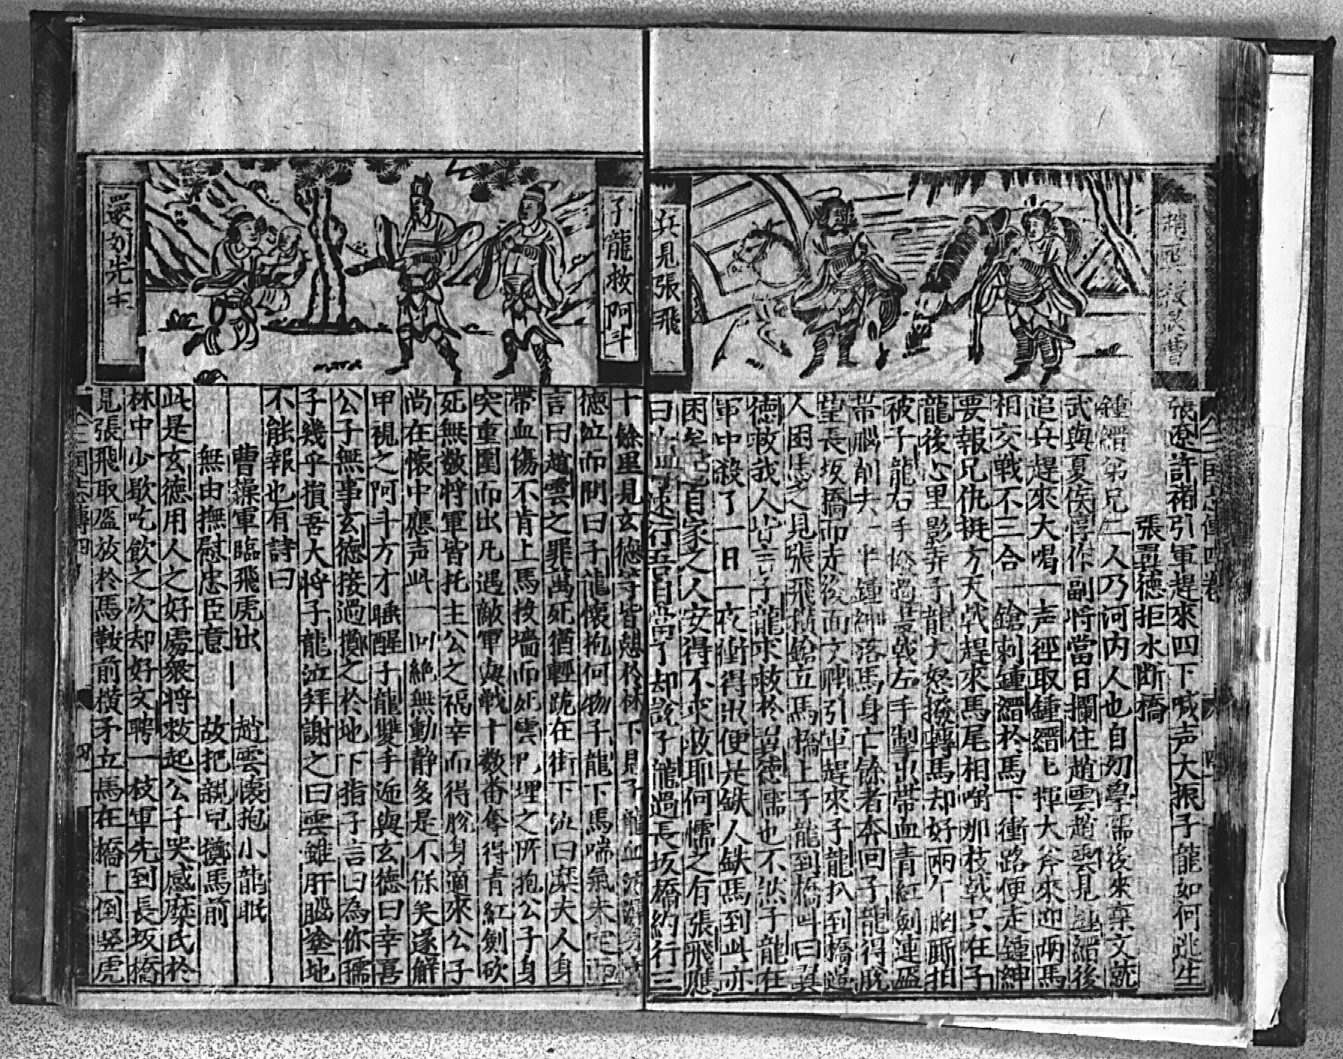 張遼許褚引軍趕來四下喊声大振子龍如何逃生
張翼德拒水断橋
鍾縉弟兄二人乃河内人也自㓜學儒後來棄文就
武與夏侯惇作副将當日攔住趙雲趙雲見鍾縉後
追兵趕來大喝一声徑取鍾縉七揮大斧來迎両馬
相交戰不三合一鎗刺鍾縉於馬下衝路便走鍾紳
要報兄仇挺方天戟趕來馬尾相啣那枝戟只在子
龍後心里影弄子龍大怒撥轉馬却好兩个胸厮拍
被子龍左手隔過畫戟右手掣出带血青紅劍連盔
带腦削去一半鍾紳落馬身亡餘者奔回子龍得脱
望長坂橋而走後面文聘引軍趕來子龍扒到橋邉
人困馬乏見張飛挺鎗立馬橋上子龍到橋叫曰翼
徳救我人皆言子龍求救於翼德懦也不然子龍在
軍中殺了一日一夜衝得出便是鉄人鉄馬到此亦
困矣見自家之人安得不求救耶何懦之有張飛應
曰子龍速行吾自當了却説子龍過長坂橋約行三
子龍救阿斗
十餘里見玄德等皆憇於林下見子龍血污滿身玄
德泣而問曰子龍懷抱何物子龍下馬喘氣未定而
言曰趙雲之罪萬死猶輕跪在街下泣曰糜夫人身
帶血傷不肯上馬投墻而死雲已埋之所抱公子身
突重圍而出凡遇敵軍海戰十数畨奪得青紅劍砍
死無数將軍皆托主公之福幸而得脫身適來公子
尚在懷中應声此一回絶無動靜多是不保矣遂解
甲視之阿斗方才睡醒子龍雙手逓與玄德曰幸喜
公子無事玄德接過擲之於地下指子言曰為你孺
子幾乎損吾大将子龍泣拜謝之曰雲雖肝腦塗地
不能報也有詩曰
曹操軍臨飛虎出　趙雲懷抱小龍眠
無由撫慰忠臣意　故把親兒擲馬前
此是玄德用人之好處衆将救起公子哭感糜氏於
林中少歇吃飲之次却好文聘一枝軍先到長坂橋
見張飛取盔放於馬鞍前橫矛立馬在橋上倒竪虎